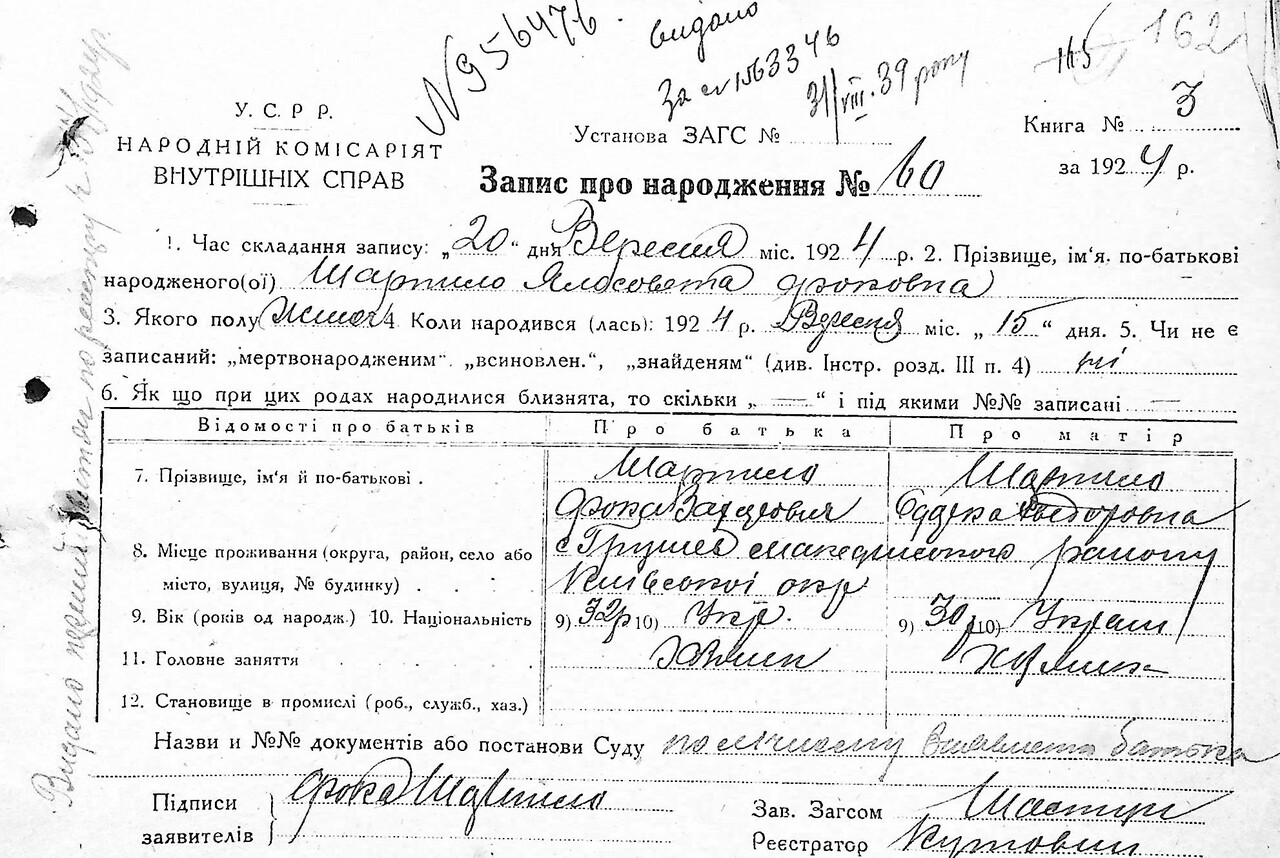 N 956476
видано
за N 1563346
31/VIII.39 року
115
162
У. С. Р Р.
НАРОДНІЙ КОМІСАРІЯТ
ВНУТРІШНІХ СПРАВ
Установа ЗАГС №
Книга № 3
за 1924 р.
Запис про народження № 60
1. Час складання запису: „20“ дня Вересня міс. 1924 р. 2. Прізвище, ім'я. по-батькові
народженого(ої) Шартило Ялосовета Фоковна
3. Якого полу Жіноч 4 Коли народився (лась): 1924 р. Вересня міс. „15“ дня. 5. Чи не є
записаний: „мертвонародженим“. „всиновлен.“, „знайденям“ (див. Інстр. розд. III п. 4) ні
6. Як що при цих родах народилися близнята, то скільки „ — “ і під якими №№ записані —
Відомості про батьків Про батька Про матір
7. Прізвище, ім'я й по-батькові . Шартило Шартило
Фока Федоровна
8. Місце проживання (округа, район, село або с Грушев району
місто, вулиця, № будинку) . . Київської окр
9. Вік (років од народж.) 10. Національність 9) 32р 10) Укр. 9) 30р 10) Украін
11. Головне заняття
12. Становище в промислі (роб., служб., хаз.)
Назви и №№ документів або постанови Суду батька
Підписи Фока Шартило
заявителів
Зав. Загсом
Реєстратор
Видано